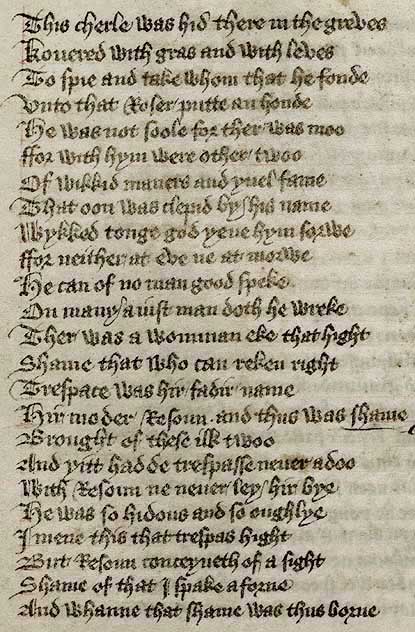 This cherle was hid there in the greves
Kouered with gras and with leves
To spie and take whom that he fonde
Vnto that Roser putte an honde
He was not soole for ther was moo
ffor with hym were other twoo
Of wikkid maners and yuel fame
That oon was clepid by his name
Wykked tonge god yeue hym sorwe
ffor neither at Eve ne at morwe
He can of no man good speke
On many a iust man doth he wreke
Ther was a womman eke that hight
Shame that who can reken right
Trespace was hir fadir name
Hir moder Resoun . and thus was shame
Brought of these ilk twoo
And yitt had de trespasse neuer adoo
With Resoun ne neuer ley hir bye
He was so hidous and so oughlye
I mene this that trespas hight
But Resoun conceyueth of a sight
Shame of that I spake aforne
And whanne that shame was thus borne